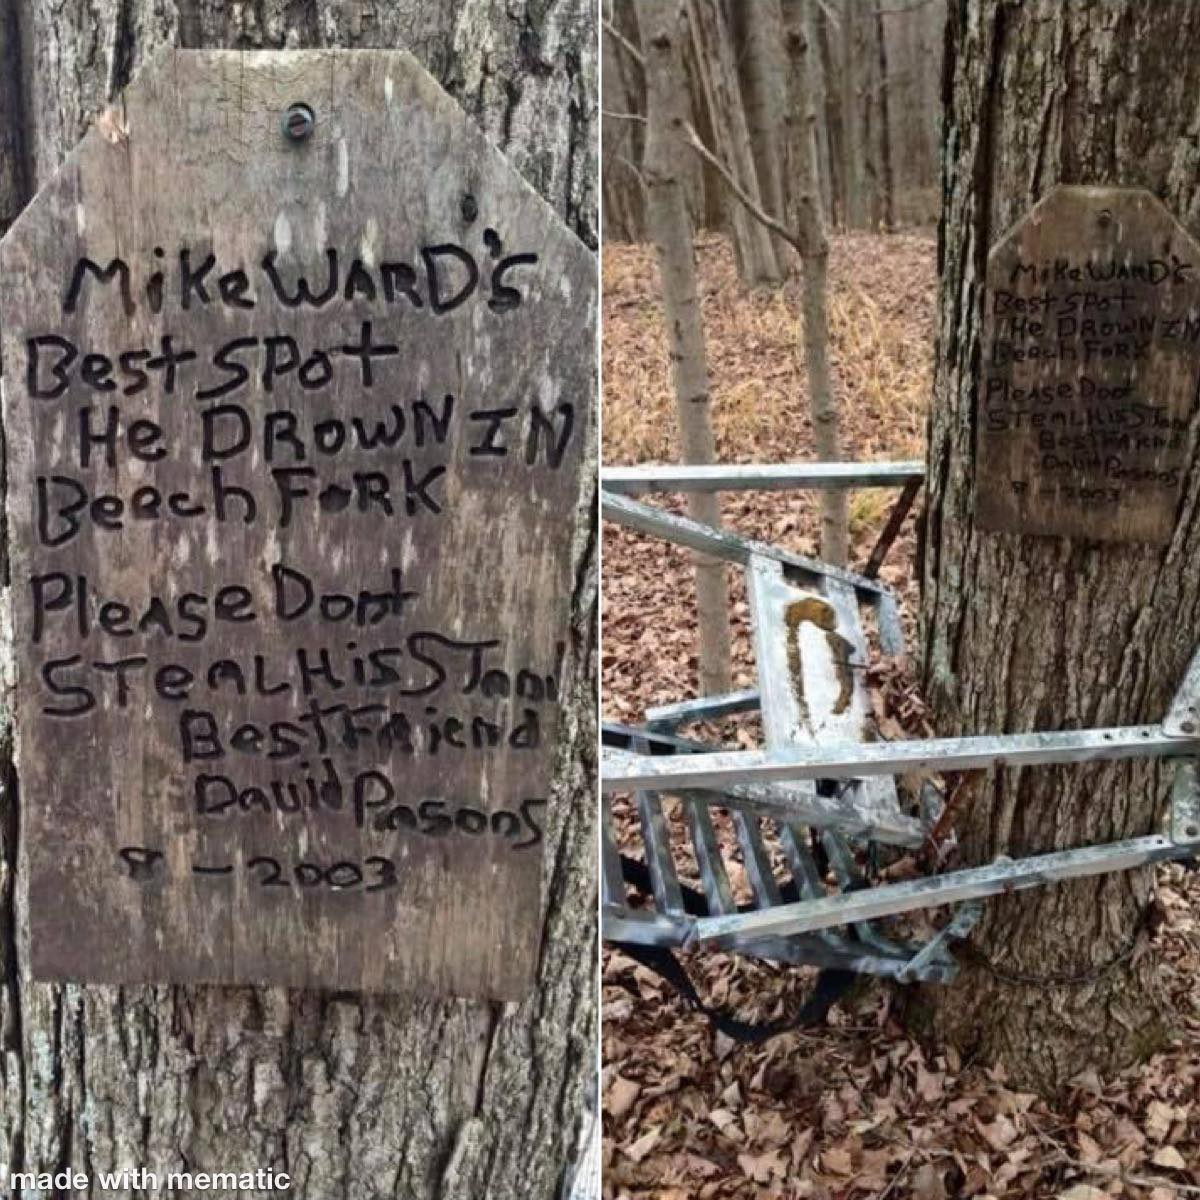 Mike WARD's
Best SPot
He DROWN IN
Beech FORK
Please Dont
STEAL His STand
Best Friend
David Pasons
8 - 2003
Mike WARD's
Best SPot
He DROWN IN
Beech FORK
Please Dont
STEAL His STand
Best Friend
David Pasons
8 - 2003
made with mematic